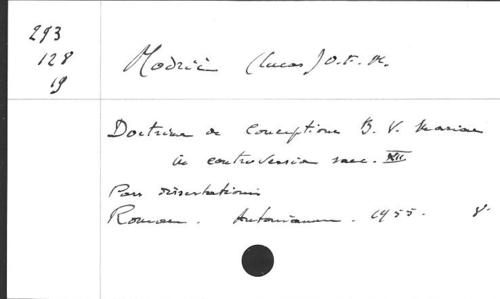 293
128
19
Modrić (Lucas) O.F.M.
Doctrina de Conceptione B. V. Mariae
in controversia saec. XII
Pars dissertationis
Romae. Antonianum. 1955. 8°